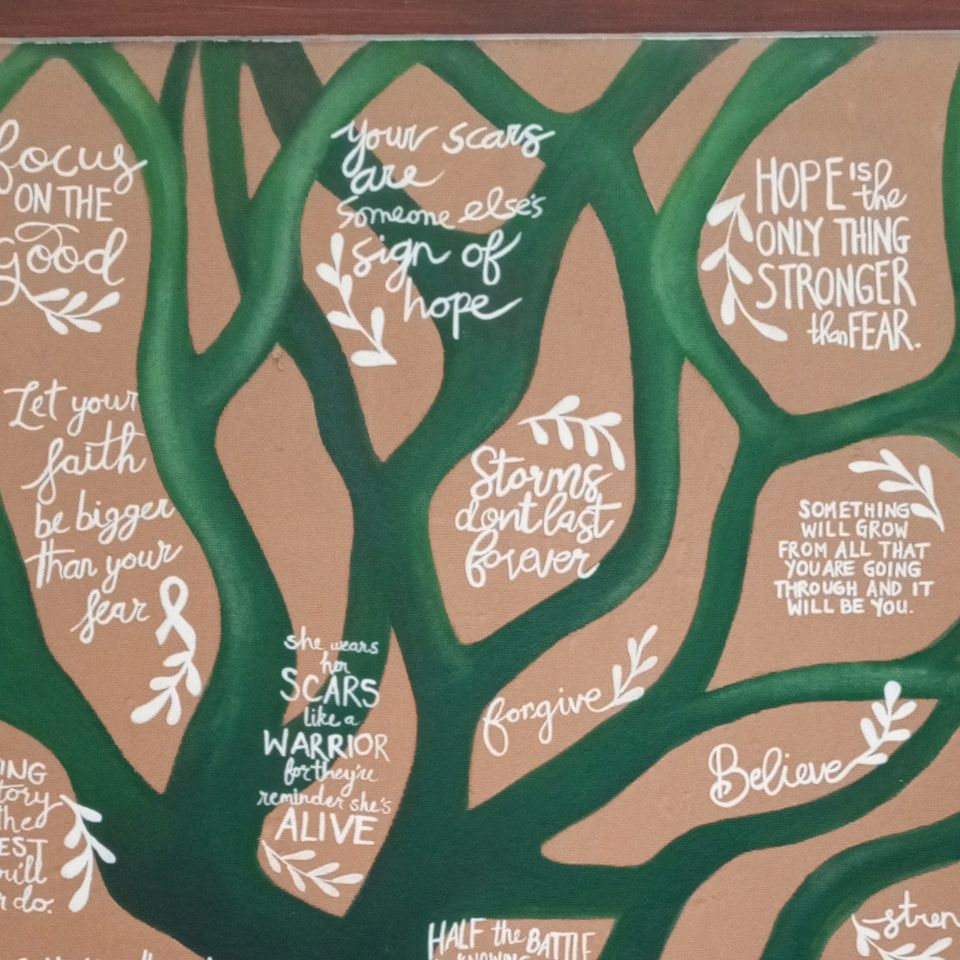 focus
ON THE
good
your scars
are
someone else's
sign of
hope
HOPE IS the
ONLY THING
STRONGER
than FEAR.
Let your
faith
be bigger
than your
fear
Storms
dont last
forever
SOMETHING
WILL GROW
FROM ALL THAT
YOU ARE GOING
THROUGH AND IT
WILL BE YOU.
she wears
her
SCARS
like a
WARRIOR
for they're
reminder she's
ALIVE
forgive
Believe
do.
HALF the BATTLE